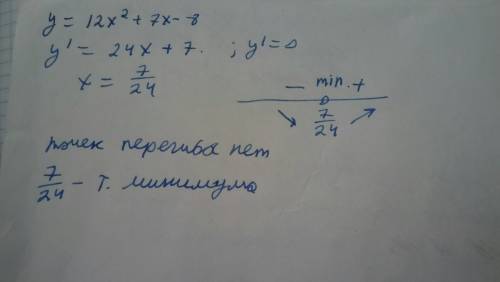 y = 12x² + 7x - 8
y' = 24x + 7. ; y' = 0
x = 7/24
— min. +
7/24
точек перегиба нет
7/24 - т. минимума